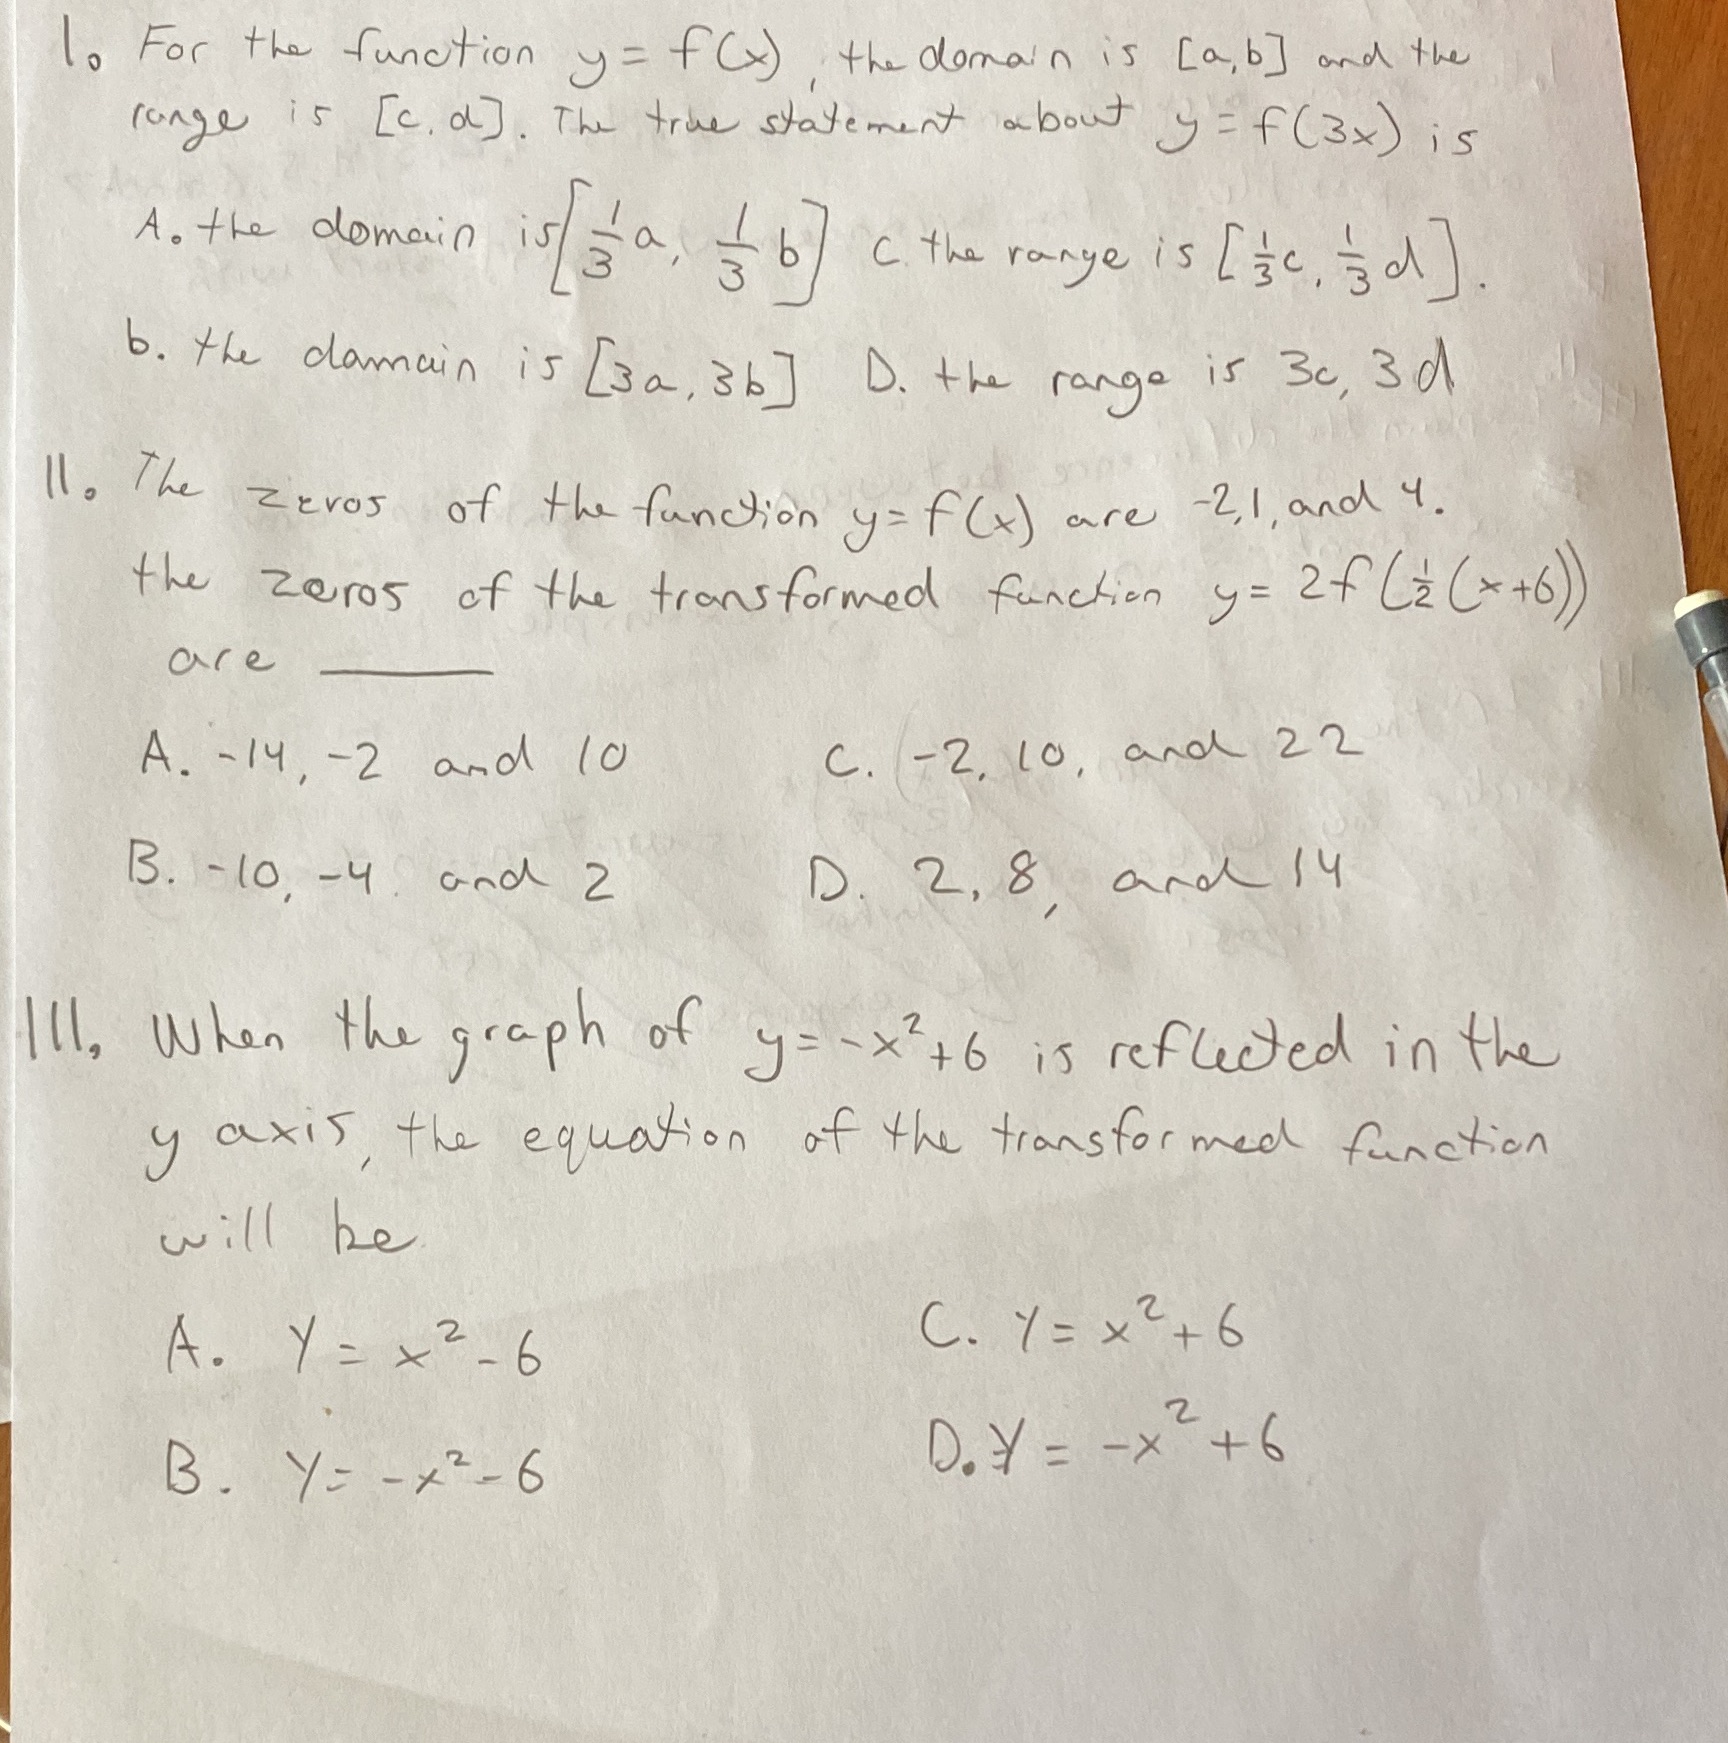 I. For the function y = f(x), the domain is [a,b] and the
range is [c,d]. The true statement about y = f(3x) is
A. the domain is [1/3 a, 1/3 b] C. the range is [1/3 c, 1/3 d].
b. the domain is [3a, 3b] D. the range is 3c, 3d
II. The zeros of the function y = f(x) are -2,1, and 4.
the zeros of the transformed function y = 2f(1/2(x+6))
are ____
A. -14, -2 and 10 C. -2, 10, and 22
B. -10, -4 and 2 D. 2, 8, and 14
III. When the graph of y = -x²+6 is reflected in the
y axis, the equation of the transformed function
will be
A. Y = x² - 6 C. Y = x² + 6
B. Y = -x² - 6 D. Y = -x² + 6